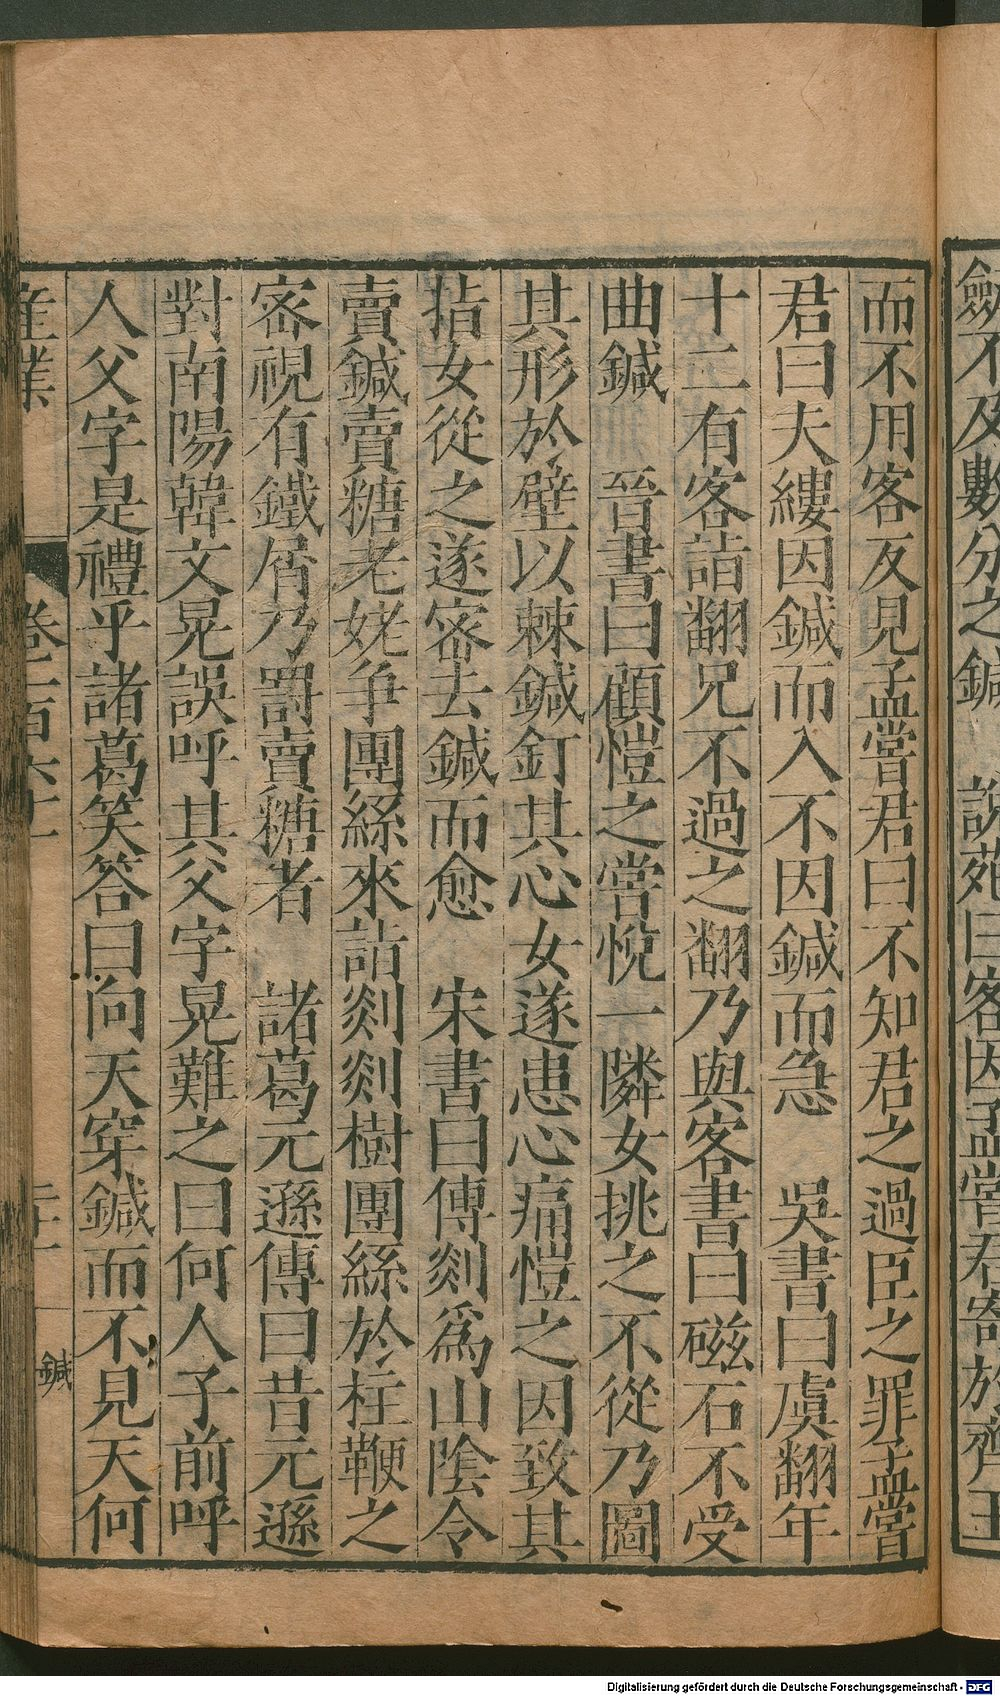 劒不及數分之鍼 說苑曰客因孟嘗君寄於齊王
而不用客反見孟嘗君曰不知君之過臣之罪孟嘗
君曰夫縷因鍼而入不因鍼而急 吳書曰虞翻年
十二有客詣翻兄不過之翻乃與客書曰磁石不受
曲鍼 晉書曰顧愷之嘗悅一隣女挑之不從乃圖
其形於壁以棘鍼釘其心女遂患心痛愷之因致其
㨖女從之遂密去鍼而愈 宋書曰傳剡爲山陰令
賣鍼賣糖老姥爭團絲來詣剡剡樹團絲於柱鞭之
密視有鐵屑乃罰賣糖者 諸葛元遜傳曰昔元遜
對南陽韓文晃誤呼其父字晃難之曰何人子前呼
人父字是禮乎諸葛笑答曰向天穿鍼而不見天何
産業 卷三百六十 二十一 鍼
Digitalisierung gefördert durch die Deutsche Forschungsgemeinschaft - DFG